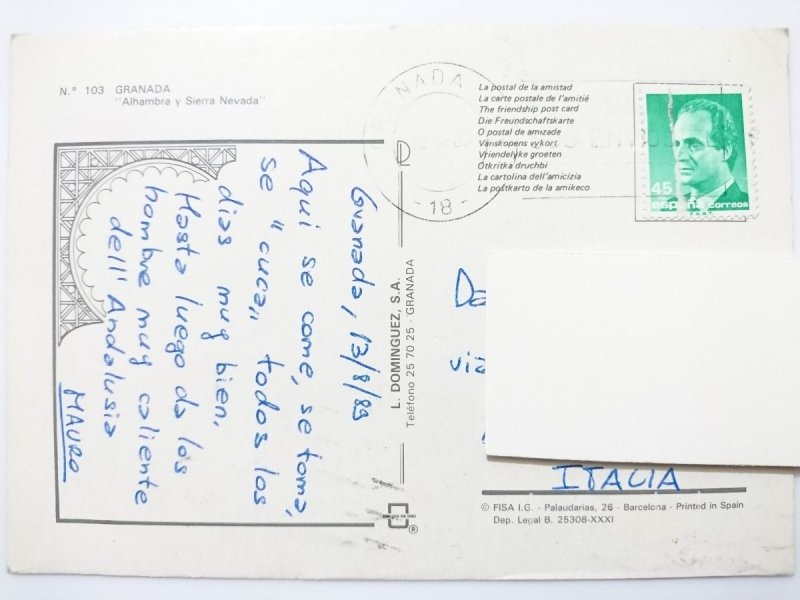 N.º 103 GRANADA
"Alhambra y Sierra Nevada"
La postal de la amistad
La carte postale de l'amitié
The friendship post card
Die Freundschaftskarte
O postal de amizade
Vänskopens vykort
Vriendelyke groeten
Otkritka druchbi
La cartolina dell'amicizia
La postkarto de la amikeco
GRANADA
- 18 -
45
españa correos
Granada, 13/8/89
Aqui se come, se toma,
se "cuca" todos los
dias muy bien.
Hasta luego da los
hombre muy caliente
dell'Andalusia
MAURO
L. DOMINGUEZ, S.A.
Teléfono 25 70 25 - GRANADA
via
ITALIA
© FISA I.G. - Palaudarias, 26 - Barcelona - Printed in Spain
Dep. Legal B. 25308-XXXI